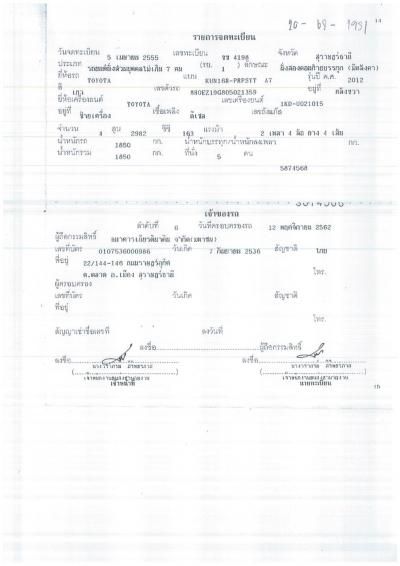 20-69-1951
14
รายการจดทะเบียน
วันจดทะเบียน 5 เมษายน 2555 เลขทะเบียน ขข 4198 จังหวัด สุราษฎร์ธานี
ประเภท รถยนต์นั่งส่วนบุคคลไม่เกิน 7 คน (รย. 1 ) ลักษณะ นั่งสองตอนท้ายบรรทุก
ยี่ห้อรถ TOYOTA แบบ KUN16R-PRPSYT A7 รุ่นปี ค.ศ. 2012
สี เทา เลขตัวรถ MR0EZ19G805021359 อยู่ที่
ยี่ห้อเครื่องยนต์ TOYOTA เลขเครื่องยนต์ 1KD-U021015
อยู่ที่ ซ้ายเครื่อง เชื้อเพลิง ดีเซล เลขถังแก๊ส
จำนวน 4 สูบ 2982 ซีซี 163 แรงม้า 2 เพลา 4 ล้อ ยาง 4 เส้น
น้ำหนักรถ 1850 กก. น้ำหนักบรรทุก/น้ำหนักลงเพลา กก.
น้ำหนักรวม 1850 กก. ที่นั่ง 5 คน
5874568
เจ้าของรถ
ลำดับที่ 6 วันที่ครอบครองรถ 12 พฤศจิกายน 2562
ผู้ถือกรรมสิทธิ์ ธนาคารเกียรตินาคิน จำกัด(มหาชน)
เลขที่บัตร 0107536000986 วันเกิด 7 กันยายน 2536 สัญชาติ ไทย
ที่อยู่ 22/144-146 ถนนราษฎร์อุทิศ
ต.ตลาด อ.เมือง สุราษฎร์ธานี โทร.
ผู้ครอบครอง
เลขที่บัตร วันเกิด สัญชาติ
ที่อยู่
โทร.
สัญญาเช่าซื้อเลขที่ ลงวันที่
ลงชื่อ ผู้ถือกรรมสิทธิ์
ลงชื่อ ลงชื่อ
เจ้าหน้าที่ นายทะเบียน
15